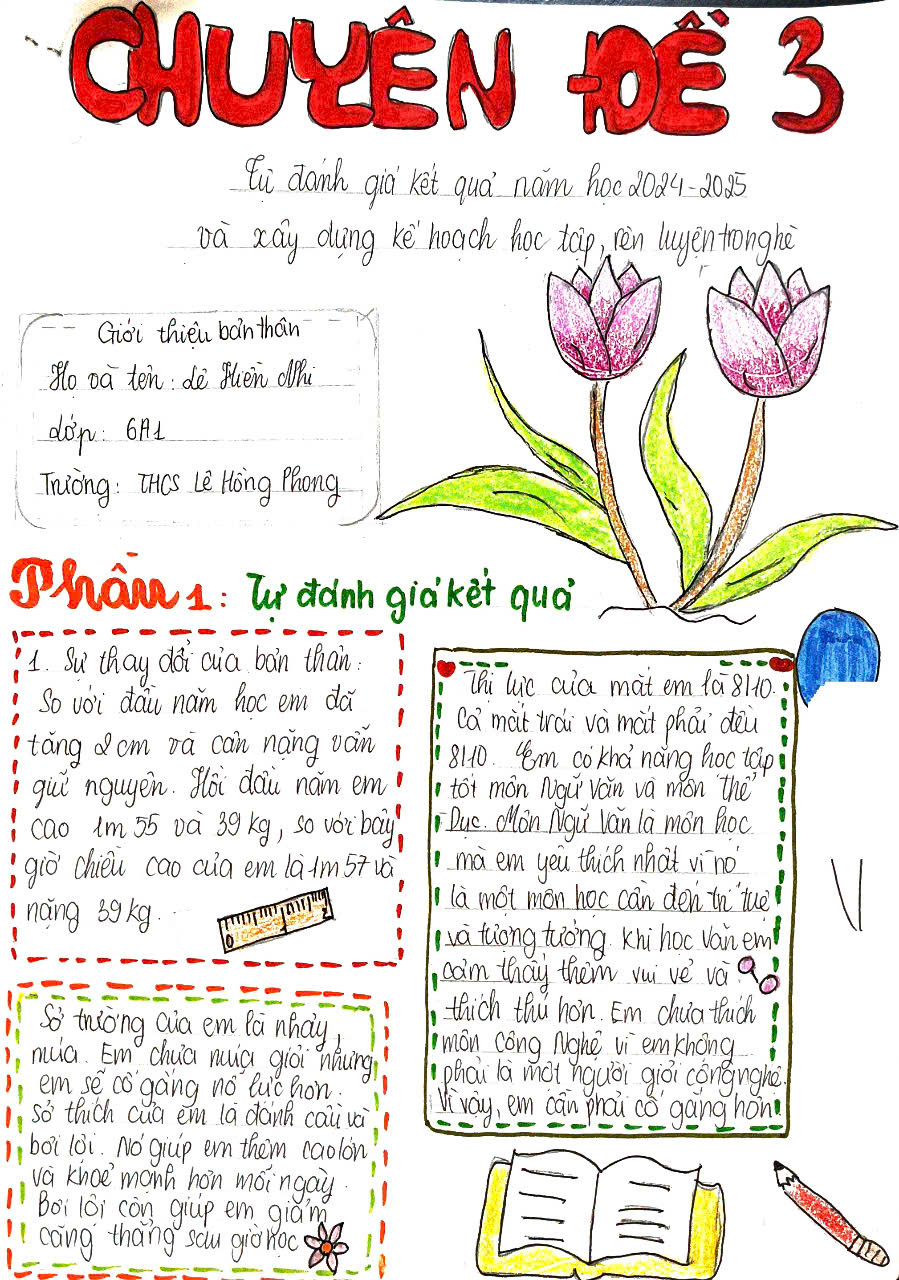 CHUYÊN ĐỀ 3
Tự đánh giá kết quả năm học 2024-2025
và xây dựng kế hoạch học tập, rèn luyện trong hè
Giới thiệu bản thân
Họ và tên: Lê Hiền Nhi
Lớp: 6A1
Trường: THCS Lê Hồng Phong
Phần 1: Tự đánh giá kết quả
1. Sự thay đổi của bản thân:
So với đầu năm học em đã
tăng 2cm và cân nặng vẫn
giữ nguyên. Hồi đầu năm em
cao 1m55 và 39kg, so với bây
giờ chiều cao của em là 1m57 và
nặng 39kg.
Sở trường của em là nhảy,
múa. Em chưa múa giỏi nhưng
em sẽ cố gắng nỗ lực hơn.
Sở thích của em là đánh cầu và
bơi lội. Nó giúp em thêm cao lớn
và khoẻ mạnh hơn mỗi ngày.
Bơi lội còn giúp em giảm
căng thẳng sau giờ học
Thị lực của mắt em là 8/10.
Cả mắt trái và mắt phải đều
8/10. Em có khả năng học tập
tốt môn Ngữ Văn và môn Thể
Dục. Môn Ngữ Văn là môn học
mà em yêu thích nhất vì nó
là một môn học cần đến trí tuệ
và tượng tưởng. Khi học Văn em
cảm thấy thêm vui vẻ và
thích thú hơn. Em chưa thích
môn Công Nghệ vì em không
phải là một người giỏi công nghệ.
Vì vậy, em cần phải cố gắng hơn!
0 1 2